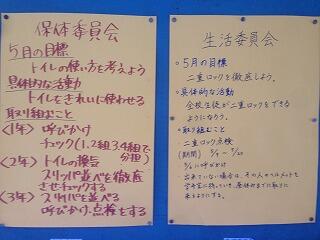 保体委員会
5月の目標
トイレの使い方を考えよう
具体的な活動
トイレをきれいに使わせる
取り組むこと
<1年> 呼びかけ
チェック(1,2組3,4組で分担)
<2年> トイレの換気
スリッパ並べを徹底
させチェックする
<3年> スリッパ並べる
呼びかけ、点検をする
生活委員会
○5月の目標
二重ロックを徹底しよう。
○具体的な活動
全校生徒が二重ロックをできる
ようになろう。
○取り組むこと
・二重ロック点検
(期間)
に呼びかけ
出来ていない場合は、その人のヘルメットを